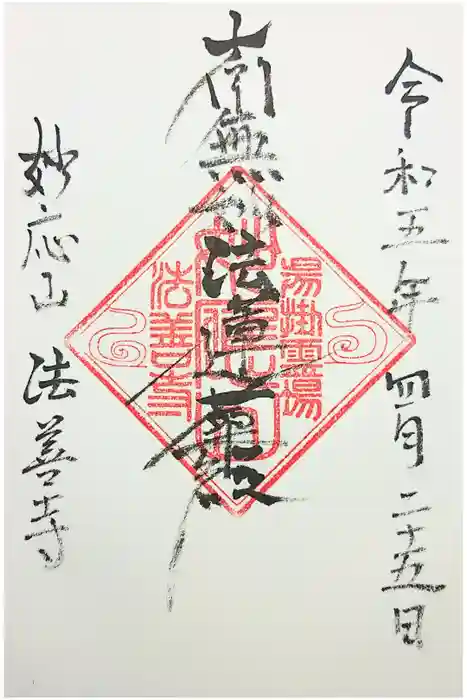 令和五年 四月二十五日
南無妙法蓮華経
湯掛靈場
法善寺
妙応山 法善寺